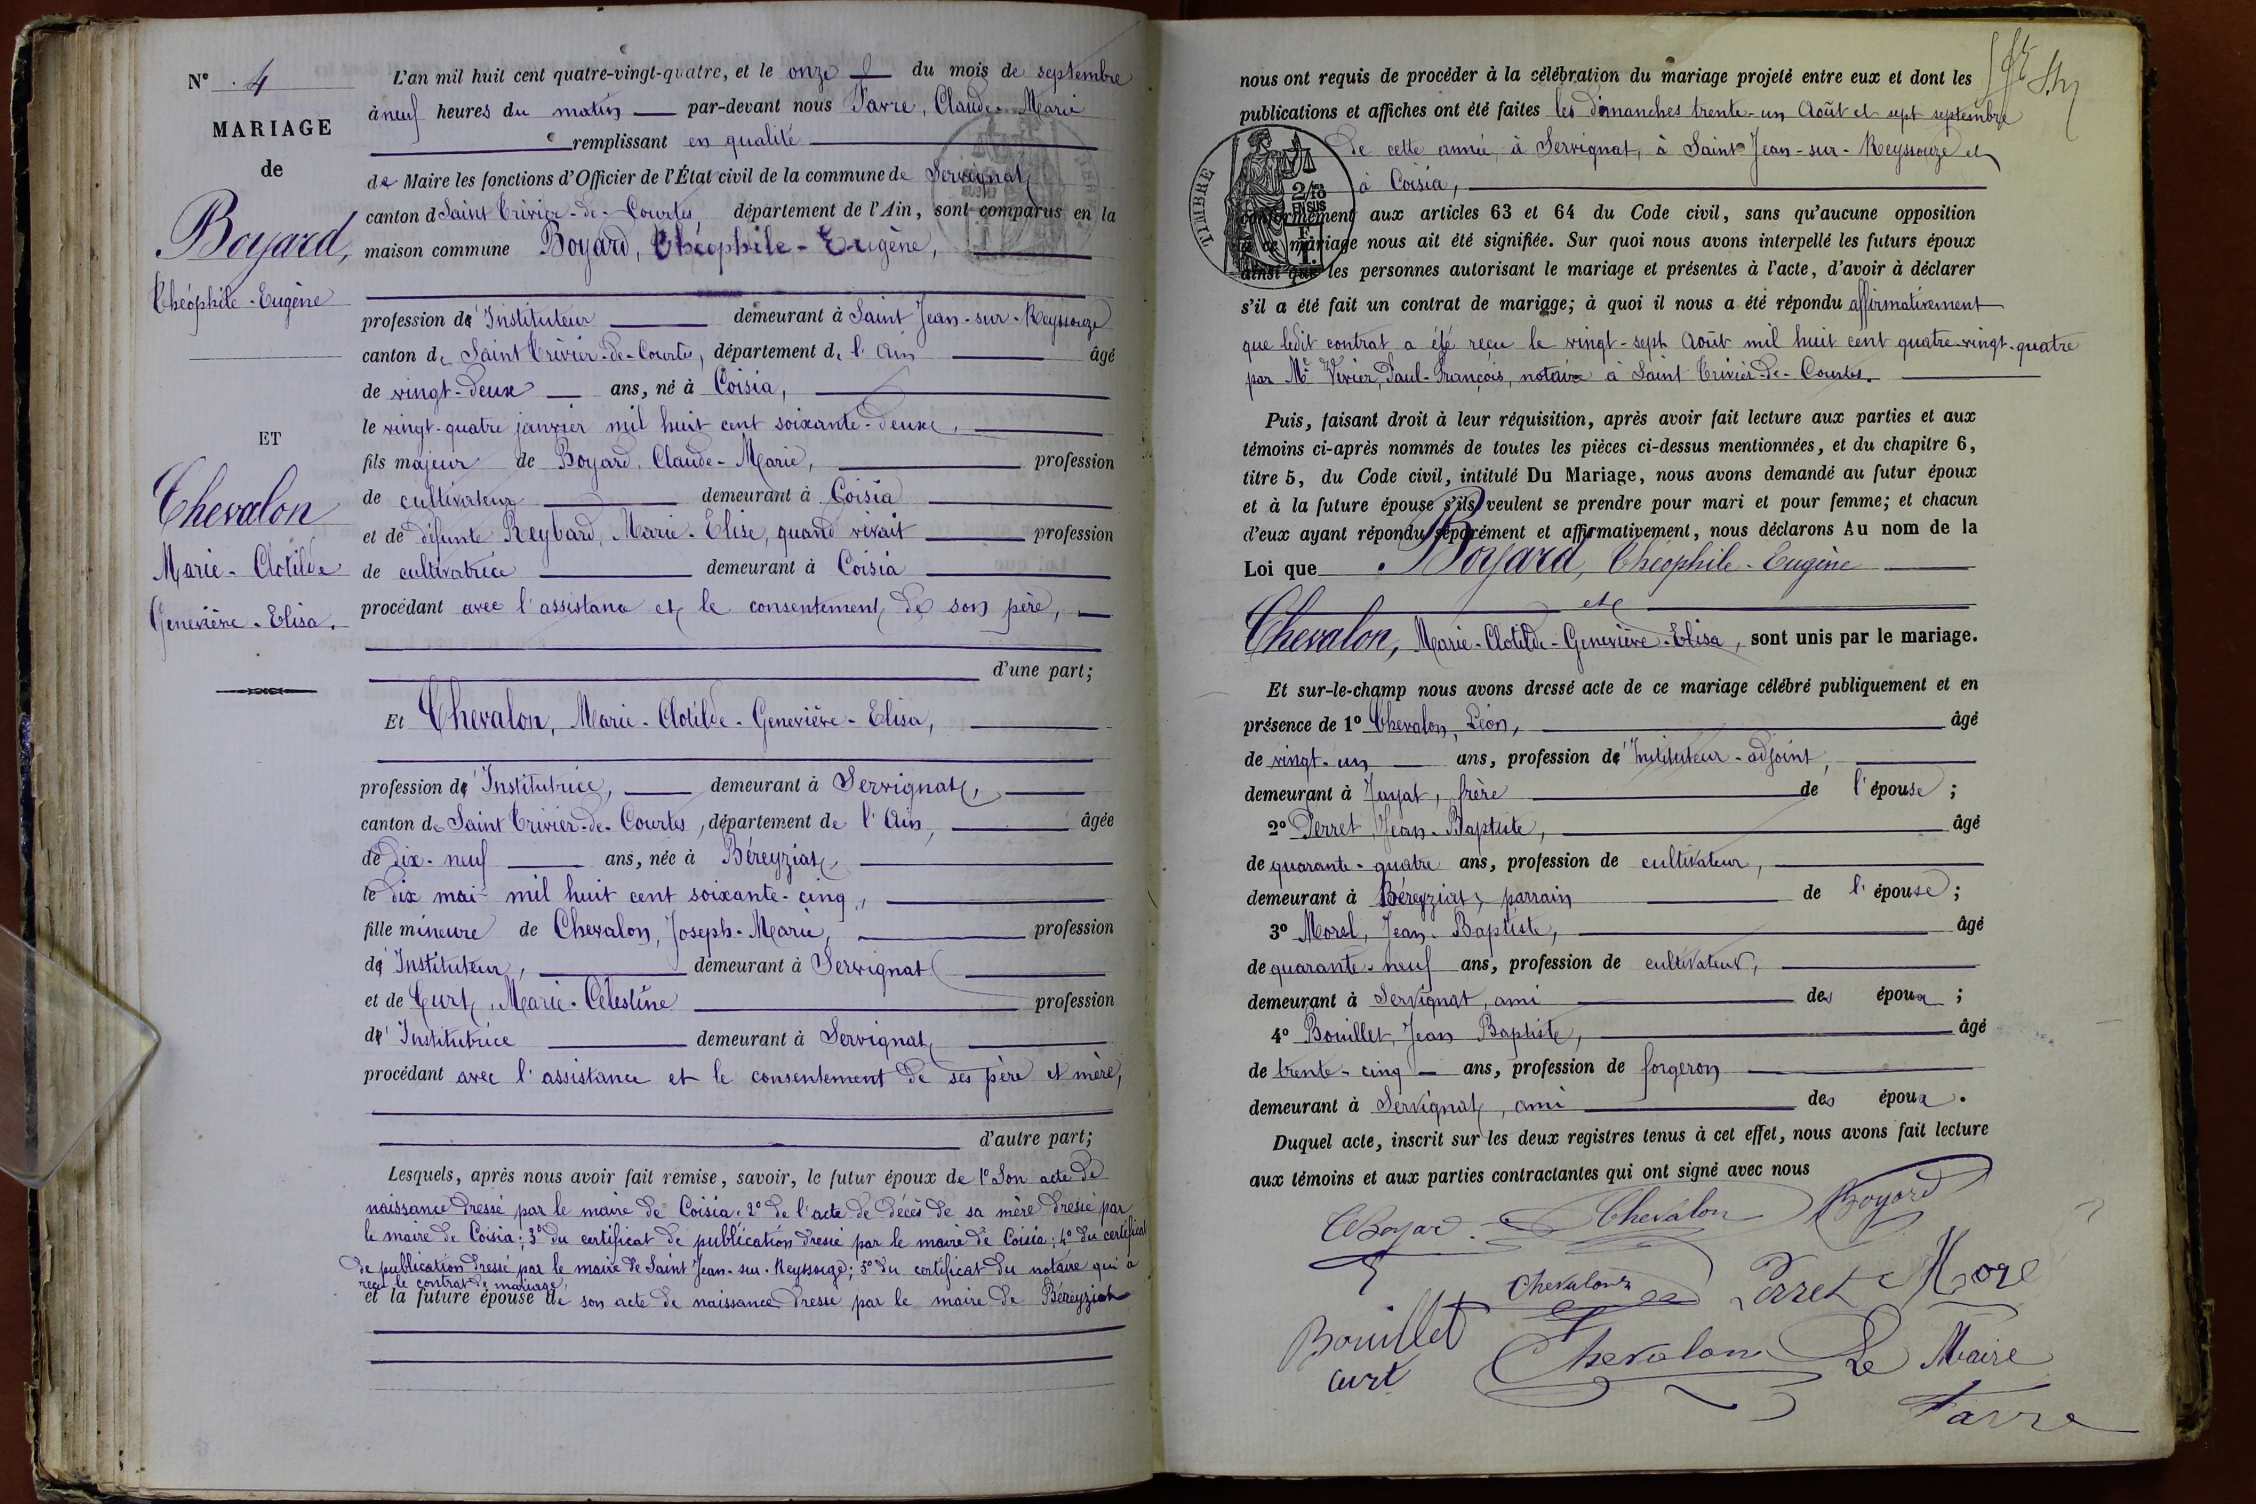 N° 4
MARIAGE
de
Boyard,
Théophile-Eugène
ET
Chevalon
Marie-Clotilde
Geneviève-Elisa.
L'an mil huit cent quatre-vingt-quatre, et le onze du mois de septembre
à neuf heures du matin par-devant nous Favre, Claude-Marie
remplissant en qualité
de Maire les fonctions d'Officier de l'État civil de la commune de Servignat
canton d Saint Trivier-de-Courtes département de l'Ain, sont comparus en la
maison commune Boyard, Théophile-Eugène,
profession d' Instituteur demeurant à Saint Jean-sur-Reyssouze
canton de Saint Trivier-de-Courtes, département de l'Ain âgé
de vingt-deux ans, né à Coisia,
le vingt-quatre janvier mil huit cent soixante-deux,
fils majeur de Boyard, Claude-Marie, profession
de cultivateur demeurant à Coisia
et de défunte Reybard, Marie-Elise, quand vivait profession
de cultivatrice demeurant à Coisia
procédant avec l'assistance et le consentement de son père,
d'une part;
Et Chevalon, Marie-Clotilde-Geneviève-Elisa,
profession d' Institutrice, demeurant à Servignat,
canton de Saint Trivier-de-Courtes, département de l'Ain, âgée
de dix-neuf ans, née à Béreyziat
le dix mai mil huit cent soixante-cinq,
fille mineure de Chevalon, Joseph-Marie, profession
d' Instituteur, demeurant à Servignat
et de Curt, Marie-Célestine profession
d' Institutrice demeurant à Servignat
procédant avec l'assistance et le consentement de ses père et mère,
d'autre part;
Lesquels, après nous avoir fait remise, savoir, le futur époux de 1° Son acte de
naissance dressé par le maire de Coisia; 2° de l'acte de décès de sa mère dressé par
le maire de Coisia; 3° du certificat de publication dressé par le maire de Coisia; 4° du certificat
de publication dressé par le maire de Saint Jean-sur-Reyssouze; 5° du certificat du notaire qui a
reçu le contrat de mariage,
et la future épouse de son acte de naissance dressé par le maire de Béreyziat
nous ont requis de procéder à la célébration du mariage projeté entre eux et dont les
publications et affiches ont été faites les dimanches trente-un Août et sept septembre
de cette année, à Servignat, à Saint-Jean-sur-Reyssouze et
à Coisia,
TIMBRE
2/10es
EN SUS
1 F.
conformément aux articles 63 et 64 du Code civil, sans qu'aucune opposition
à ce mariage nous ait été signifiée. Sur quoi nous avons interpellé les futurs époux
ainsi que les personnes autorisant le mariage et présentes à l'acte, d'avoir à déclarer
s'il a été fait un contrat de mariage; à quoi il nous a été répondu affirmativement
que ledit contrat a été reçu le vingt-sept Août mil huit cent quatre-vingt-quatre
par Me Vivier, Paul-François, notaire à Saint Trivier-de-Courtes.
Puis, faisant droit à leur réquisition, après avoir fait lecture aux parties et aux
témoins ci-après nommés de toutes les pièces ci-dessus mentionnées, et du chapitre 6,
titre 5, du Code civil, intitulé Du Mariage, nous avons demandé au futur époux
et à la future épouse s'ils veulent se prendre pour mari et pour femme; et chacun
d'eux ayant répondu séparément et affirmativement, nous déclarons Au nom de la
Loi que Boyard, Théophile-Eugène
et
Chevalon, Marie-Clotilde-Geneviève-Elisa, sont unis par le mariage.
Et sur-le-champ nous avons dressé acte de ce mariage célébré publiquement et en
présence de 1° Chevalon, Léon, âgé
de vingt-un ans, profession d' Instituteur-adjoint,
demeurant à Jayat, frère de l'épouse;
2° Perret, Jean-Baptiste, âgé
de quarante-quatre ans, profession de cultivateur,
demeurant à Béreyziat, parrain de l'épouse;
3° Morel, Jean-Baptiste, âgé
de quarante-neuf ans, profession de cultivateur,
demeurant à Servignat, ami des époux;
4° Bouillet, Jean Baptiste, âgé
de trente-cinq ans, profession de forgeron
demeurant à Servignat, ami des époux.
Duquel acte, inscrit sur les deux registres tenus à cet effet, nous avons fait lecture
aux témoins et aux parties contractantes qui ont signé avec nous
Chevalon Boyard
Chevalon Perret Morel
Bouillet Chevalon Le Maire
Curt
Favre